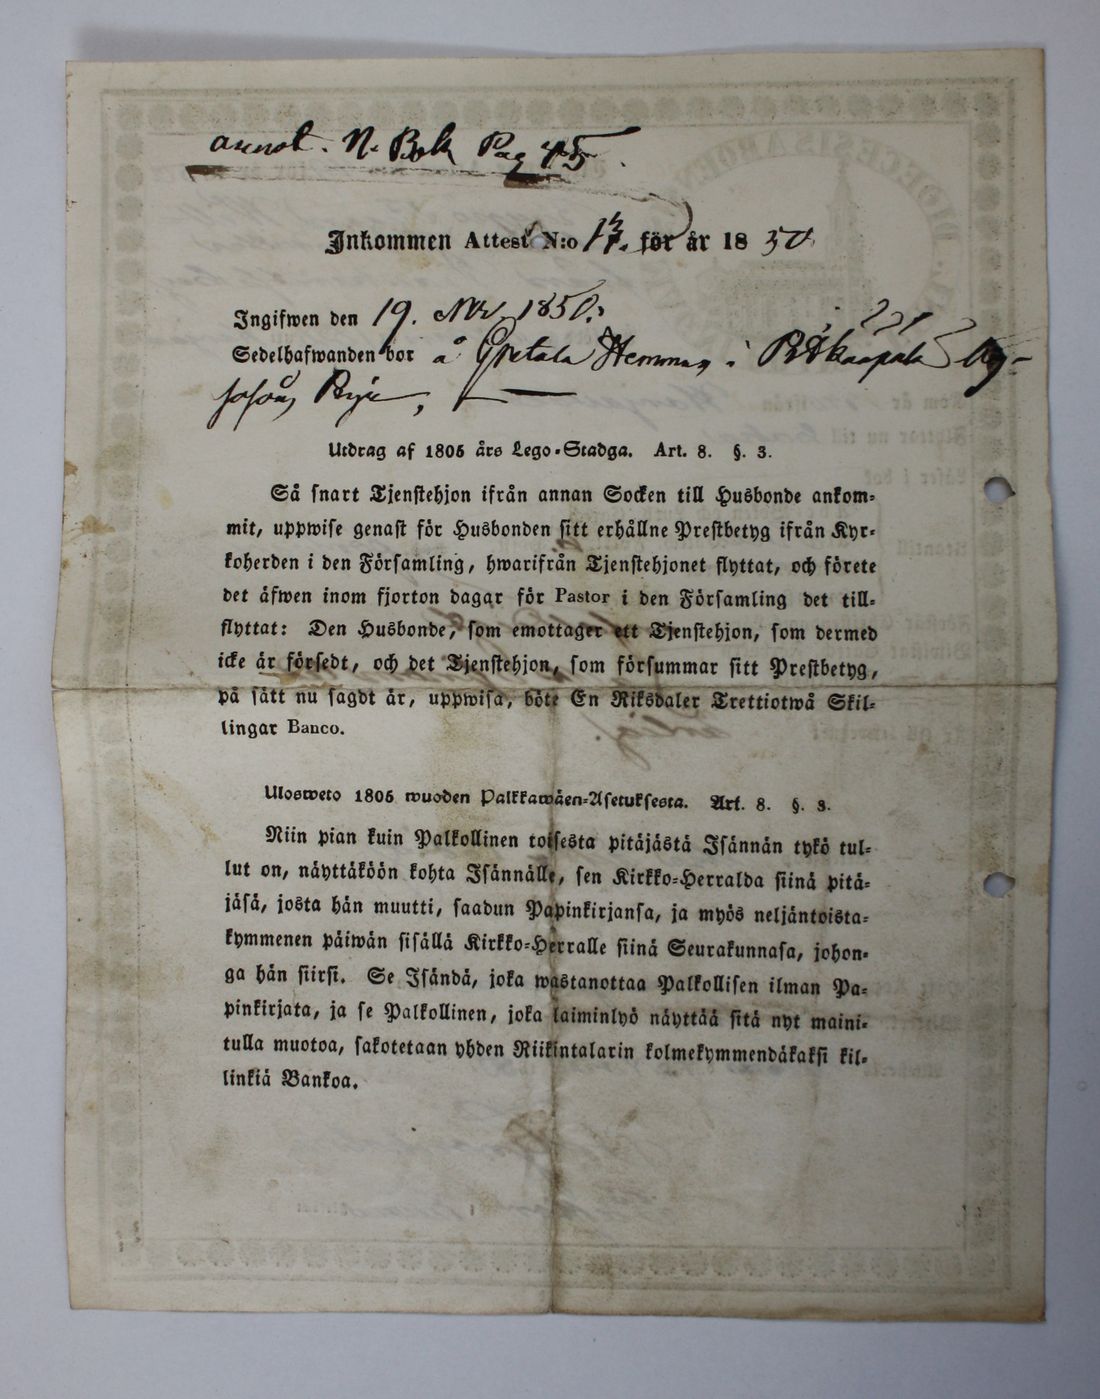 annot. N. Bok Pag 45
Inkommen Attest N:o 17. för år 1850
Ingifwen den 19. Nov 1850.
Sedelhafwanden bor å Hemman i
Utdrag af 1805 års Lego-Stadga. Art. 8. §. 3.
Så snart Tjenstehjon ifrån annan Socken till Husbonde ankom-
mit, uppwise genast för Husbonden sitt erhållne Prestbetyg ifrån Kyr-
koherden i den Församling, hwarifrån Tjenstehjonet flyttat, och förete
det äfwen inom fjorton dagar för Pastor i den Församling det till-
flyttat: Den Husbonde, som emottager ett Tjenstehjon, som dermed
icke är försedt, och det Tjenstehjon, som försummar sitt Prestbetyg,
på sätt nu sagdt är, uppwisa, böte En Riksdaler Trettiotwå Skil-
lingar Banco.
Ulosweto 1805 wuoden Palkkawäen-Asetuksesta. Art. 8. §. 3.
Niin pian kuin Palkollinen toisesta pitäjästä Isännän tykö tul-
lut on, näyttäköön kohta Isännälle, sen Kirkko-Herralda siinä pitä-
jäsä, josta hän muutti, saadun Papinkirjansa, ja myös neljäntoista-
kymmenen päiwän sisällä Kirkko-Herralle siinä Seurakunnasa, johon-
ga hän siirsi. Se Isändä, joka wastanottaa Palkollisen ilman Pa-
pinkirjata, ja se Palkollinen, joka laiminlyö näyttää sitä nyt maini-
tulla muotoa, sakotetaan yhden Riikintalarin kolmekymmendäkaksi kil-
linkiä Bankoa.